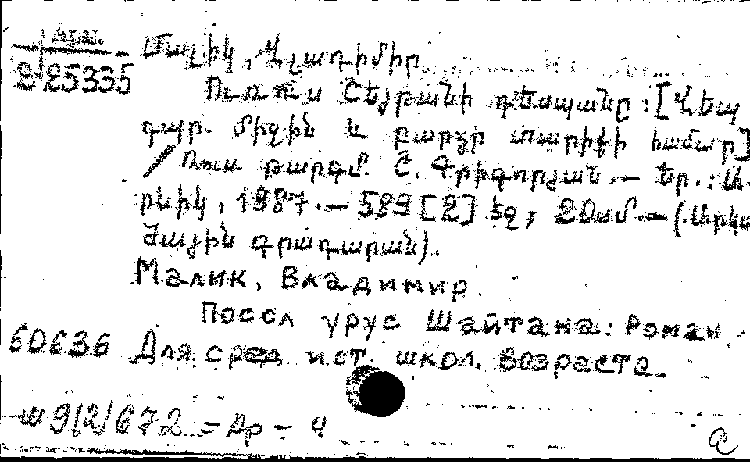 225335
Մալիկ, Վլադիմիր
Ուռուս Շեյթանի դեսպանը: [Վեպ
դպր. միջին և բարձր տարիքի համար]
/ Ռուս. թարգմ. Շ. Գրիգորյան. — Եր.: Ա-
րևիկ, 1987. — 589 [2] էջ; 20սմ. — (Արկա-
ծային գրադարան).
Малик, Владимир.
Посол урус Шайтана: Роман.
60636 Для сред. и ст. школ. возраста.
ш 9(2)672 = Ар - Ч